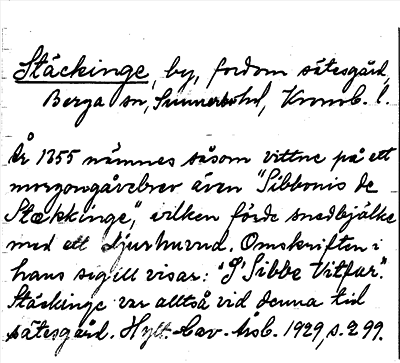 Stäckinge, by, fordom sätesgård,
Berga sn, Sunnerbohd, Kronob. l.
År 1355 nämnes såsom vittne på ett
morgongåvebrev även "Sibbonis de
Stækkinge", vilken förde snedbjälke
med ett djurhuvud. Omskriften i
hans sigill visar: "S' Sibbe Vitfar".
Stäckinge var alltså vid denna tid
sätesgård. Hylt.-Cav. Årsb. 1929, s. 299.